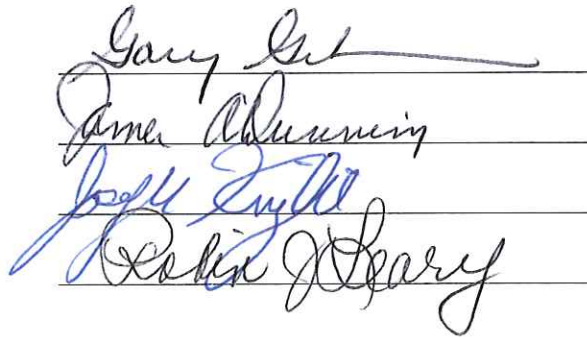 Gary
James A Dunning
Joseph
Robin J Leary